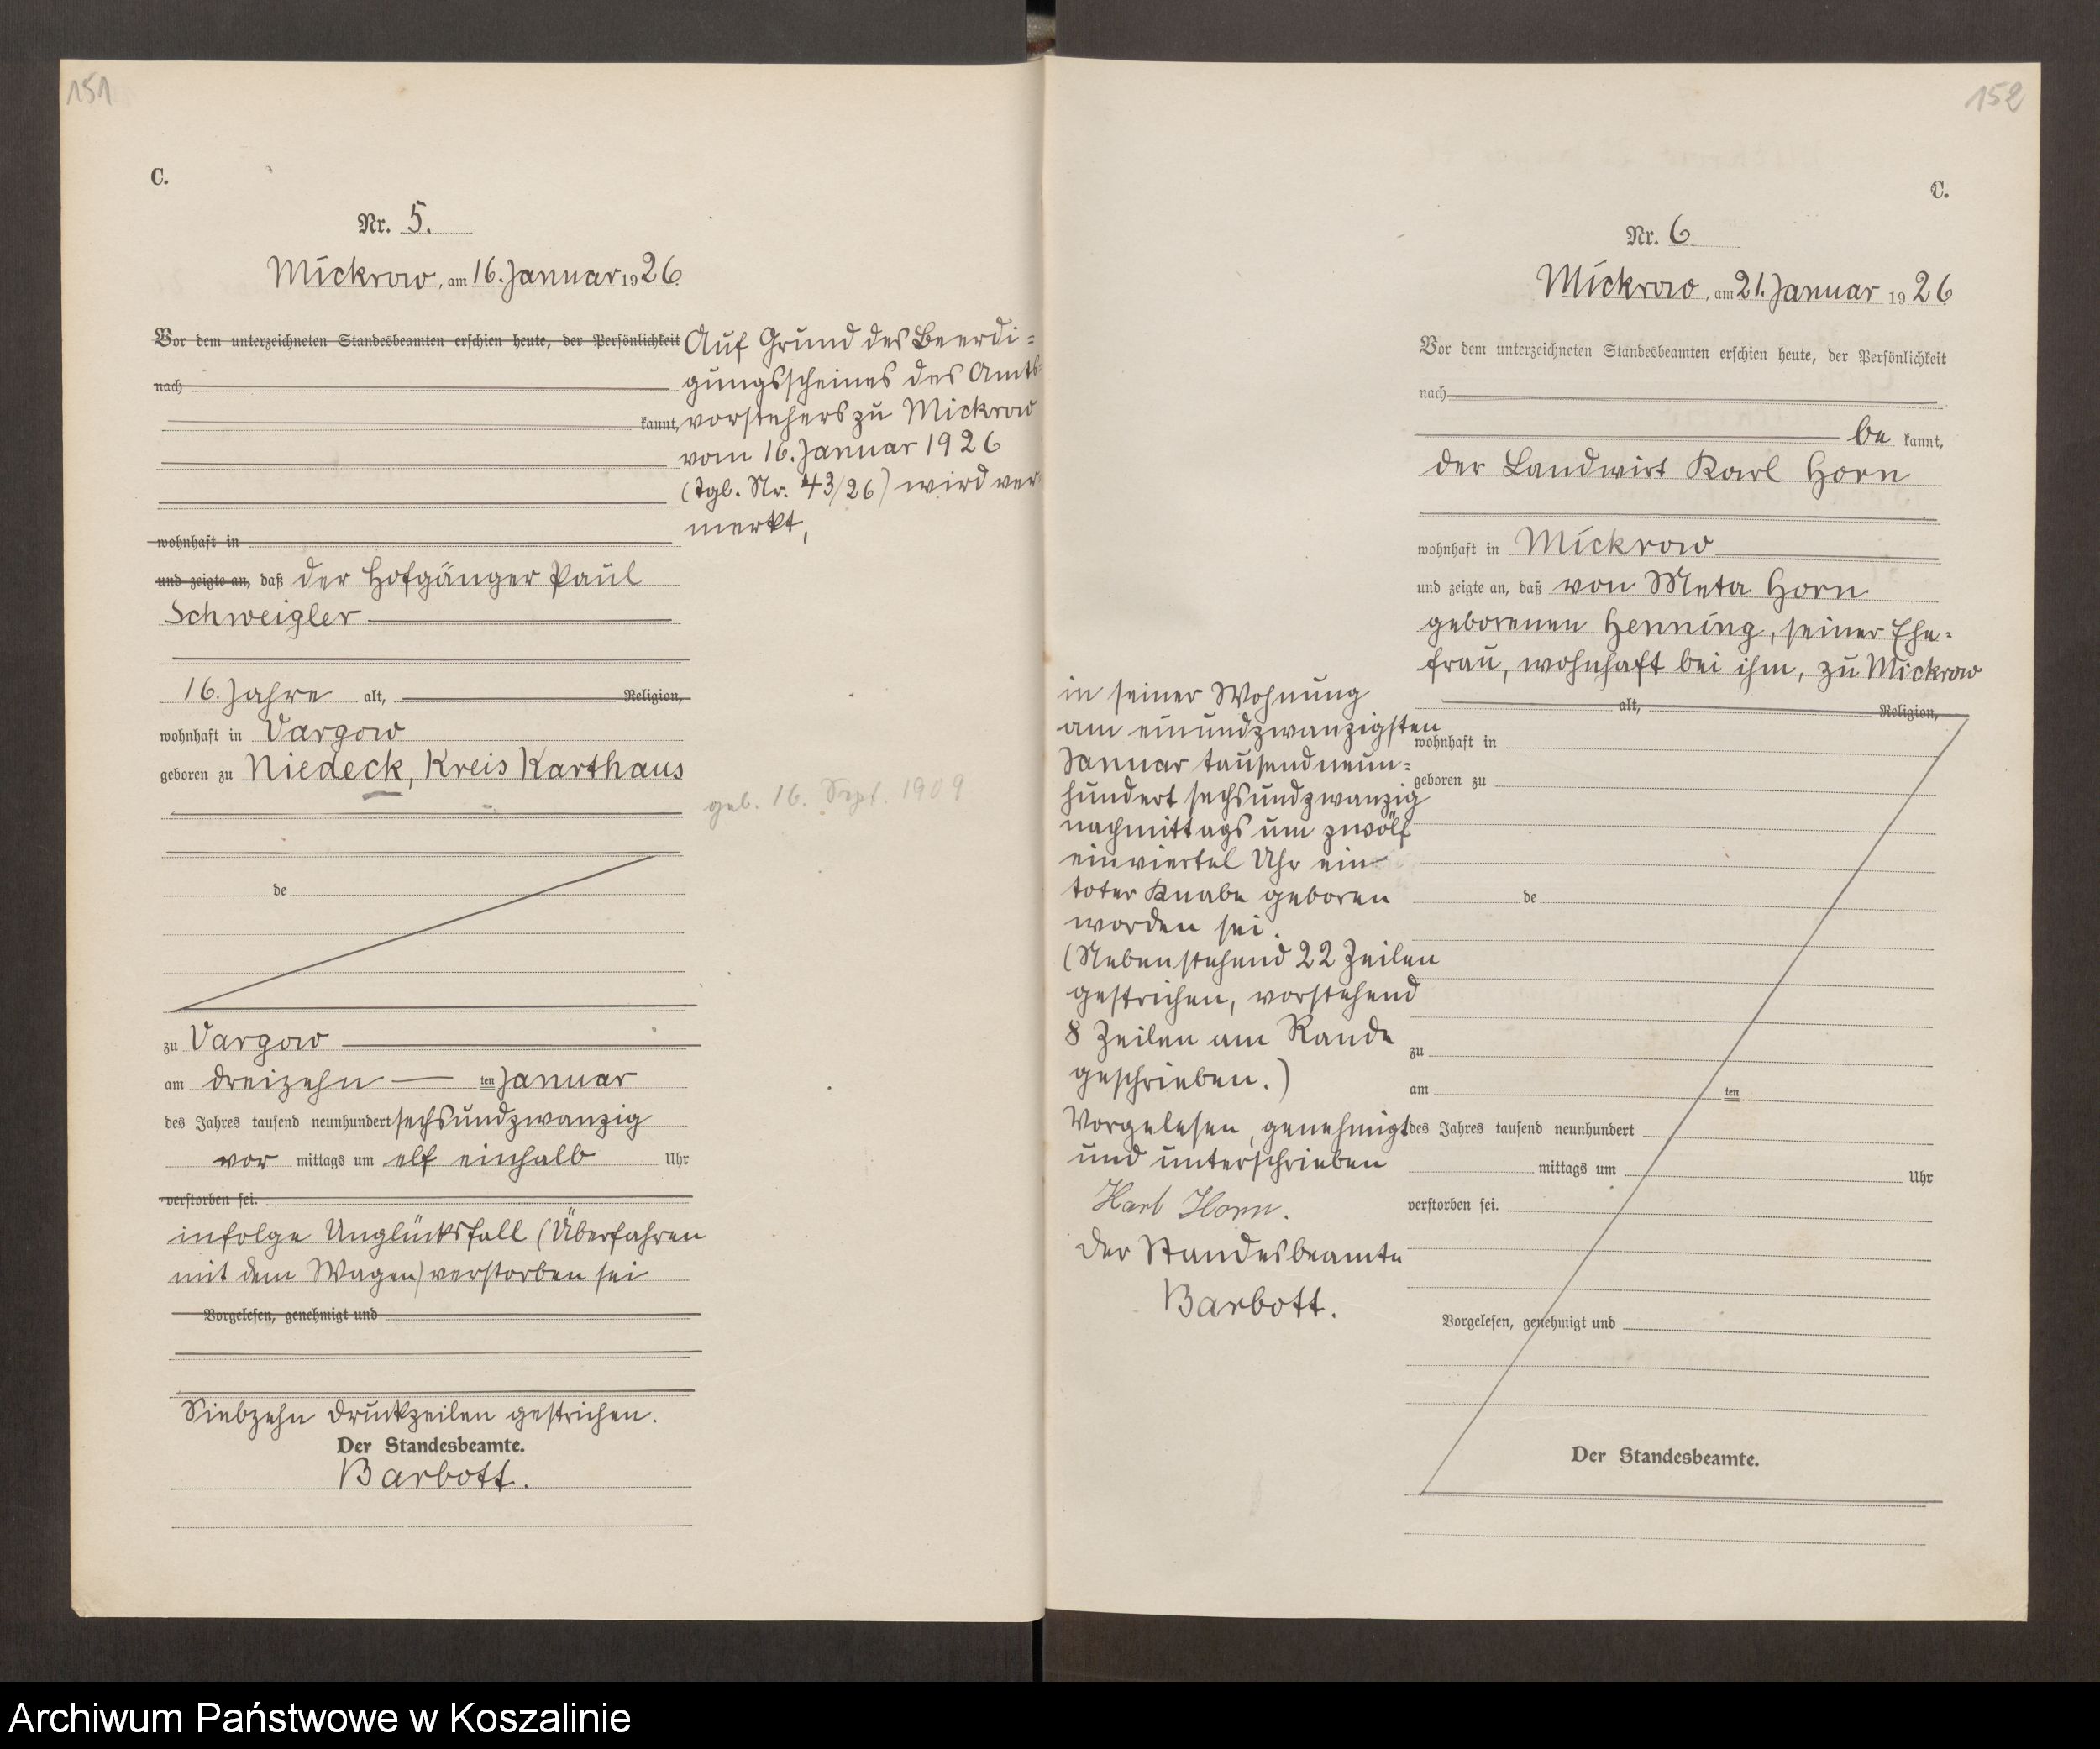 151
C.
Nr. 5.
Mickrow, am 16. Januar 1926.
Vor dem unterzeichneten Standesbeamten erschien heute, der Persönlichkeit
nach
kannt,
wohnhaft in
Auf Grund des Beerdi=
gungsscheines des Amts=
vorstehers zu Mickrow
vom 16. Januar 1926
(Tgb. Nr. 43/26) wird ver=
merkt,
und zeigte an, daß der Hofgänger Paul
Schweigler
16. Jahre alt, Religion,
wohnhaft in Vargow
geboren zu Niedeck, Kreis Karthaus
geb. 16. Sept. 1909
de
zu Vargow
am dreizehn ten Januar
des Jahres tausend neunhundert sechsundzwanzig
vor mittags um elf einhalb Uhr
verstorben sei.
infolge Unglücksfall (Überfahren
mit dem Wagen) verstorben sei
Vorgelesen, genehmigt und
Siebzehn Druckzeilen gestrichen.
Der Standesbeamte.
Barbott.
152
C.
Nr. 6
Mickrow, am 21. Januar 1926
Vor dem unterzeichneten Standesbeamten erschien heute, der Persönlichkeit
nach
be kannt,
der Landwirt Karl Horn
wohnhaft in Mickrow
und zeigte an, daß von Meta Horn
geborenen Henning, seiner Ehe=
frau, wohnhaft bei ihm, zu Mickrow
in seiner Wohnung
am einundzwanzigsten
Januar tausendneun=
hundert sechsundzwanzig
nachmittags um zwölf
einviertel Uhr ein
toter Knabe geboren
worden sei.
(Nebenstehend 22 Zeilen
gestrichen, vorstehend
8 Zeilen am Rande
geschrieben.)
Vorgelesen, genehmigt
und unterschrieben
Karl Horn.
Der Standesbeamte
Barbott.
alt, Religion,
wohnhaft in
geboren zu
de
zu
am ten
des Jahres tausend neunhundert
mittags um Uhr
verstorben sei.
Vorgelesen, genehmigt und
Der Standesbeamte.
Archiwum Państwowe w Koszalinie